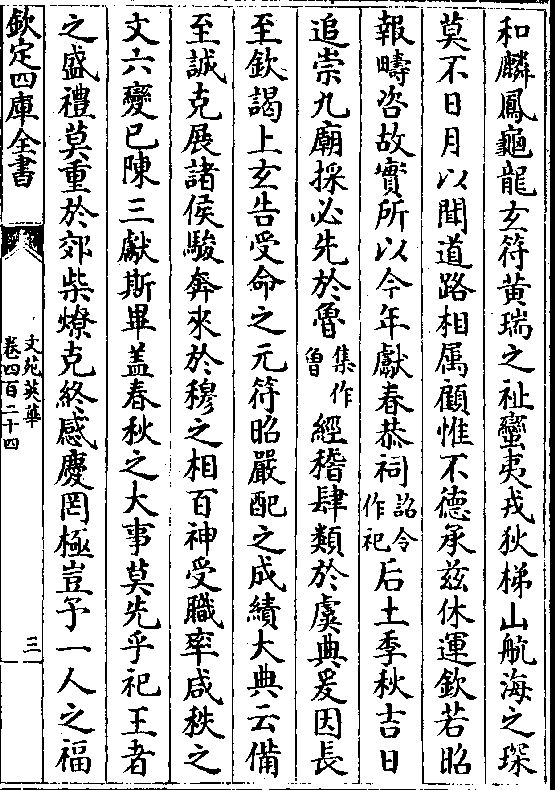 和麟鳳龜龍玄符黄瑞之祉蠻夷戎狄梯山航海之琛
莫不日月以聞道路相属顧惟不德承兹休運欽若昭
報疇咨故實所以今年獻春恭祠詔令作祀后土季秋吉日
追崇九廟採必先於魯集作魯經稽肆類於虞典爰因長
至欽謁上玄告受命之元符昭嚴配之成績大典云備
至誠克展諸侯駿奔來於穆之相百神受職率咸秩之
文六變已陳三獻斯畢盖春秋之大事莫先乎祀王者
之盛禮莫重於郊柴燎克終感慶罔極豈予一人之福
欽定四庫全書
文苑英華
卷四百二十四
三